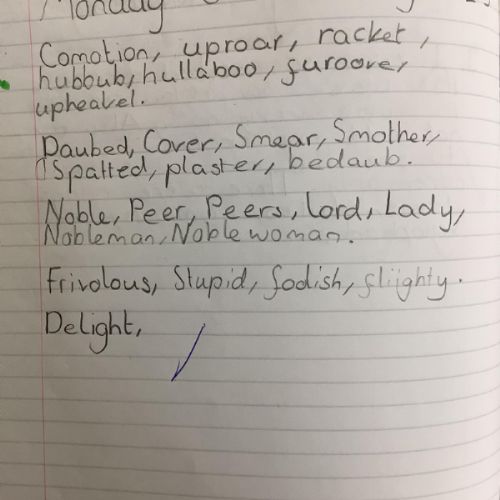 Monday
Comotion, uproar, racket,
hubbub, hullaboo, furoove,
upheavel.
Daubed, Cover, Smear, Smother,
Spatted, plaster, bedaub.
Noble, Peer, Peers, Lord, Lady,
Nobleman, Noblewoman.
Frivolous, Stupid, foolish, fliighty.
Delight,